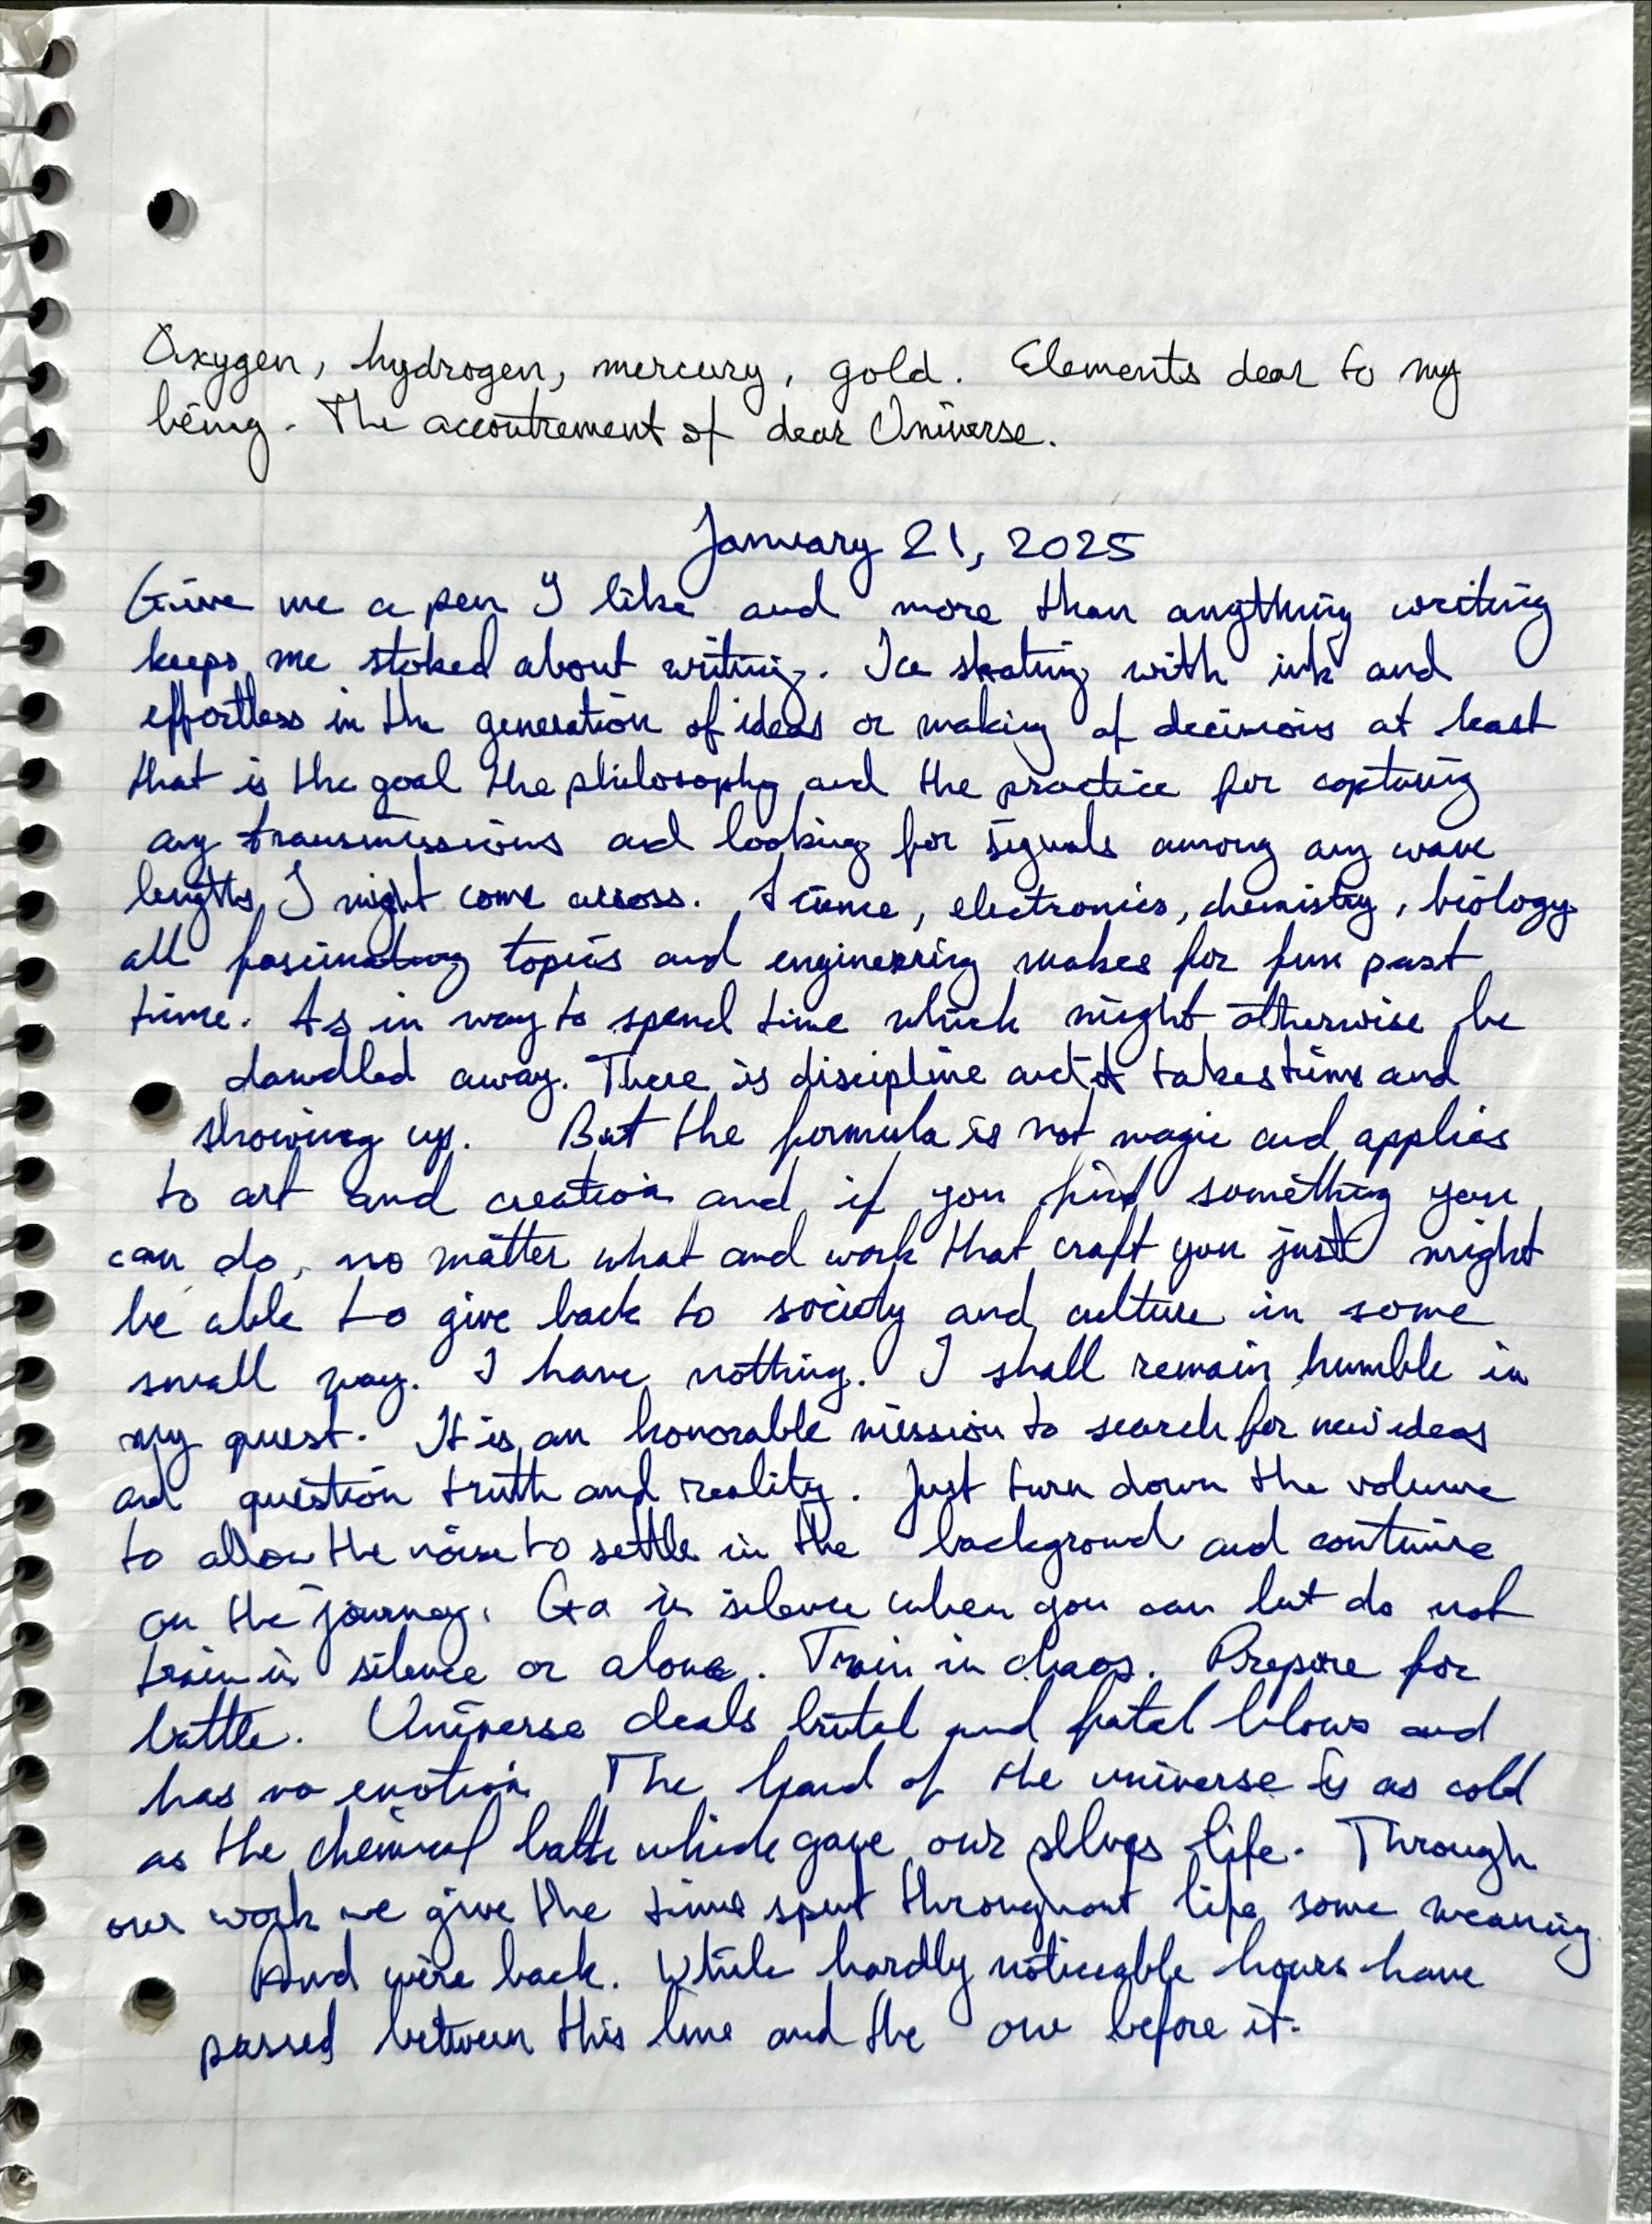 Oxygen, hydrogen, mercury, gold. Elements dear to my
being. The accoutrement of dear Universe.
January 21, 2025
Give me a pen I like and more than anything writing
keeps me stoked about writing. Ice skating with ink and
effortless in the generation of ideas or making of decisions at least
that is the goal the philosophy and the practice for capturing
any transmissions and looking for signals among any wave
lengths I might come across. Science, electronics, chemistry, biology
all fascinating topics and engineering makes for fun past
time. As in way to spend time which might otherwise be
dawdled away. There is discipline and it takes time and
showing up. But the formula is not magic and applies
to art and creation and if you find something you
can do, no matter what and work that craft you just might
be able to give back to society and culture in some
small way. I have nothing. I shall remain humble in
my quest. It is an honorable mission to search for new ideas
and question truth and reality. Just turn down the volume
to allow the noise to settle in the background and continue
on the journey. Go in silence when you can but do not
train in silence or alone. Train in chaos. Prepare for
battle. Universe deals brutal and fatal blows and
has no emotion The hand of the universe is as cold
as the chemical bath which gave our sllves life. Through
our work we give the time spent throughout life some meaning.
And we're back. While hardly noticeable hours have
passed between this line and the one before it.